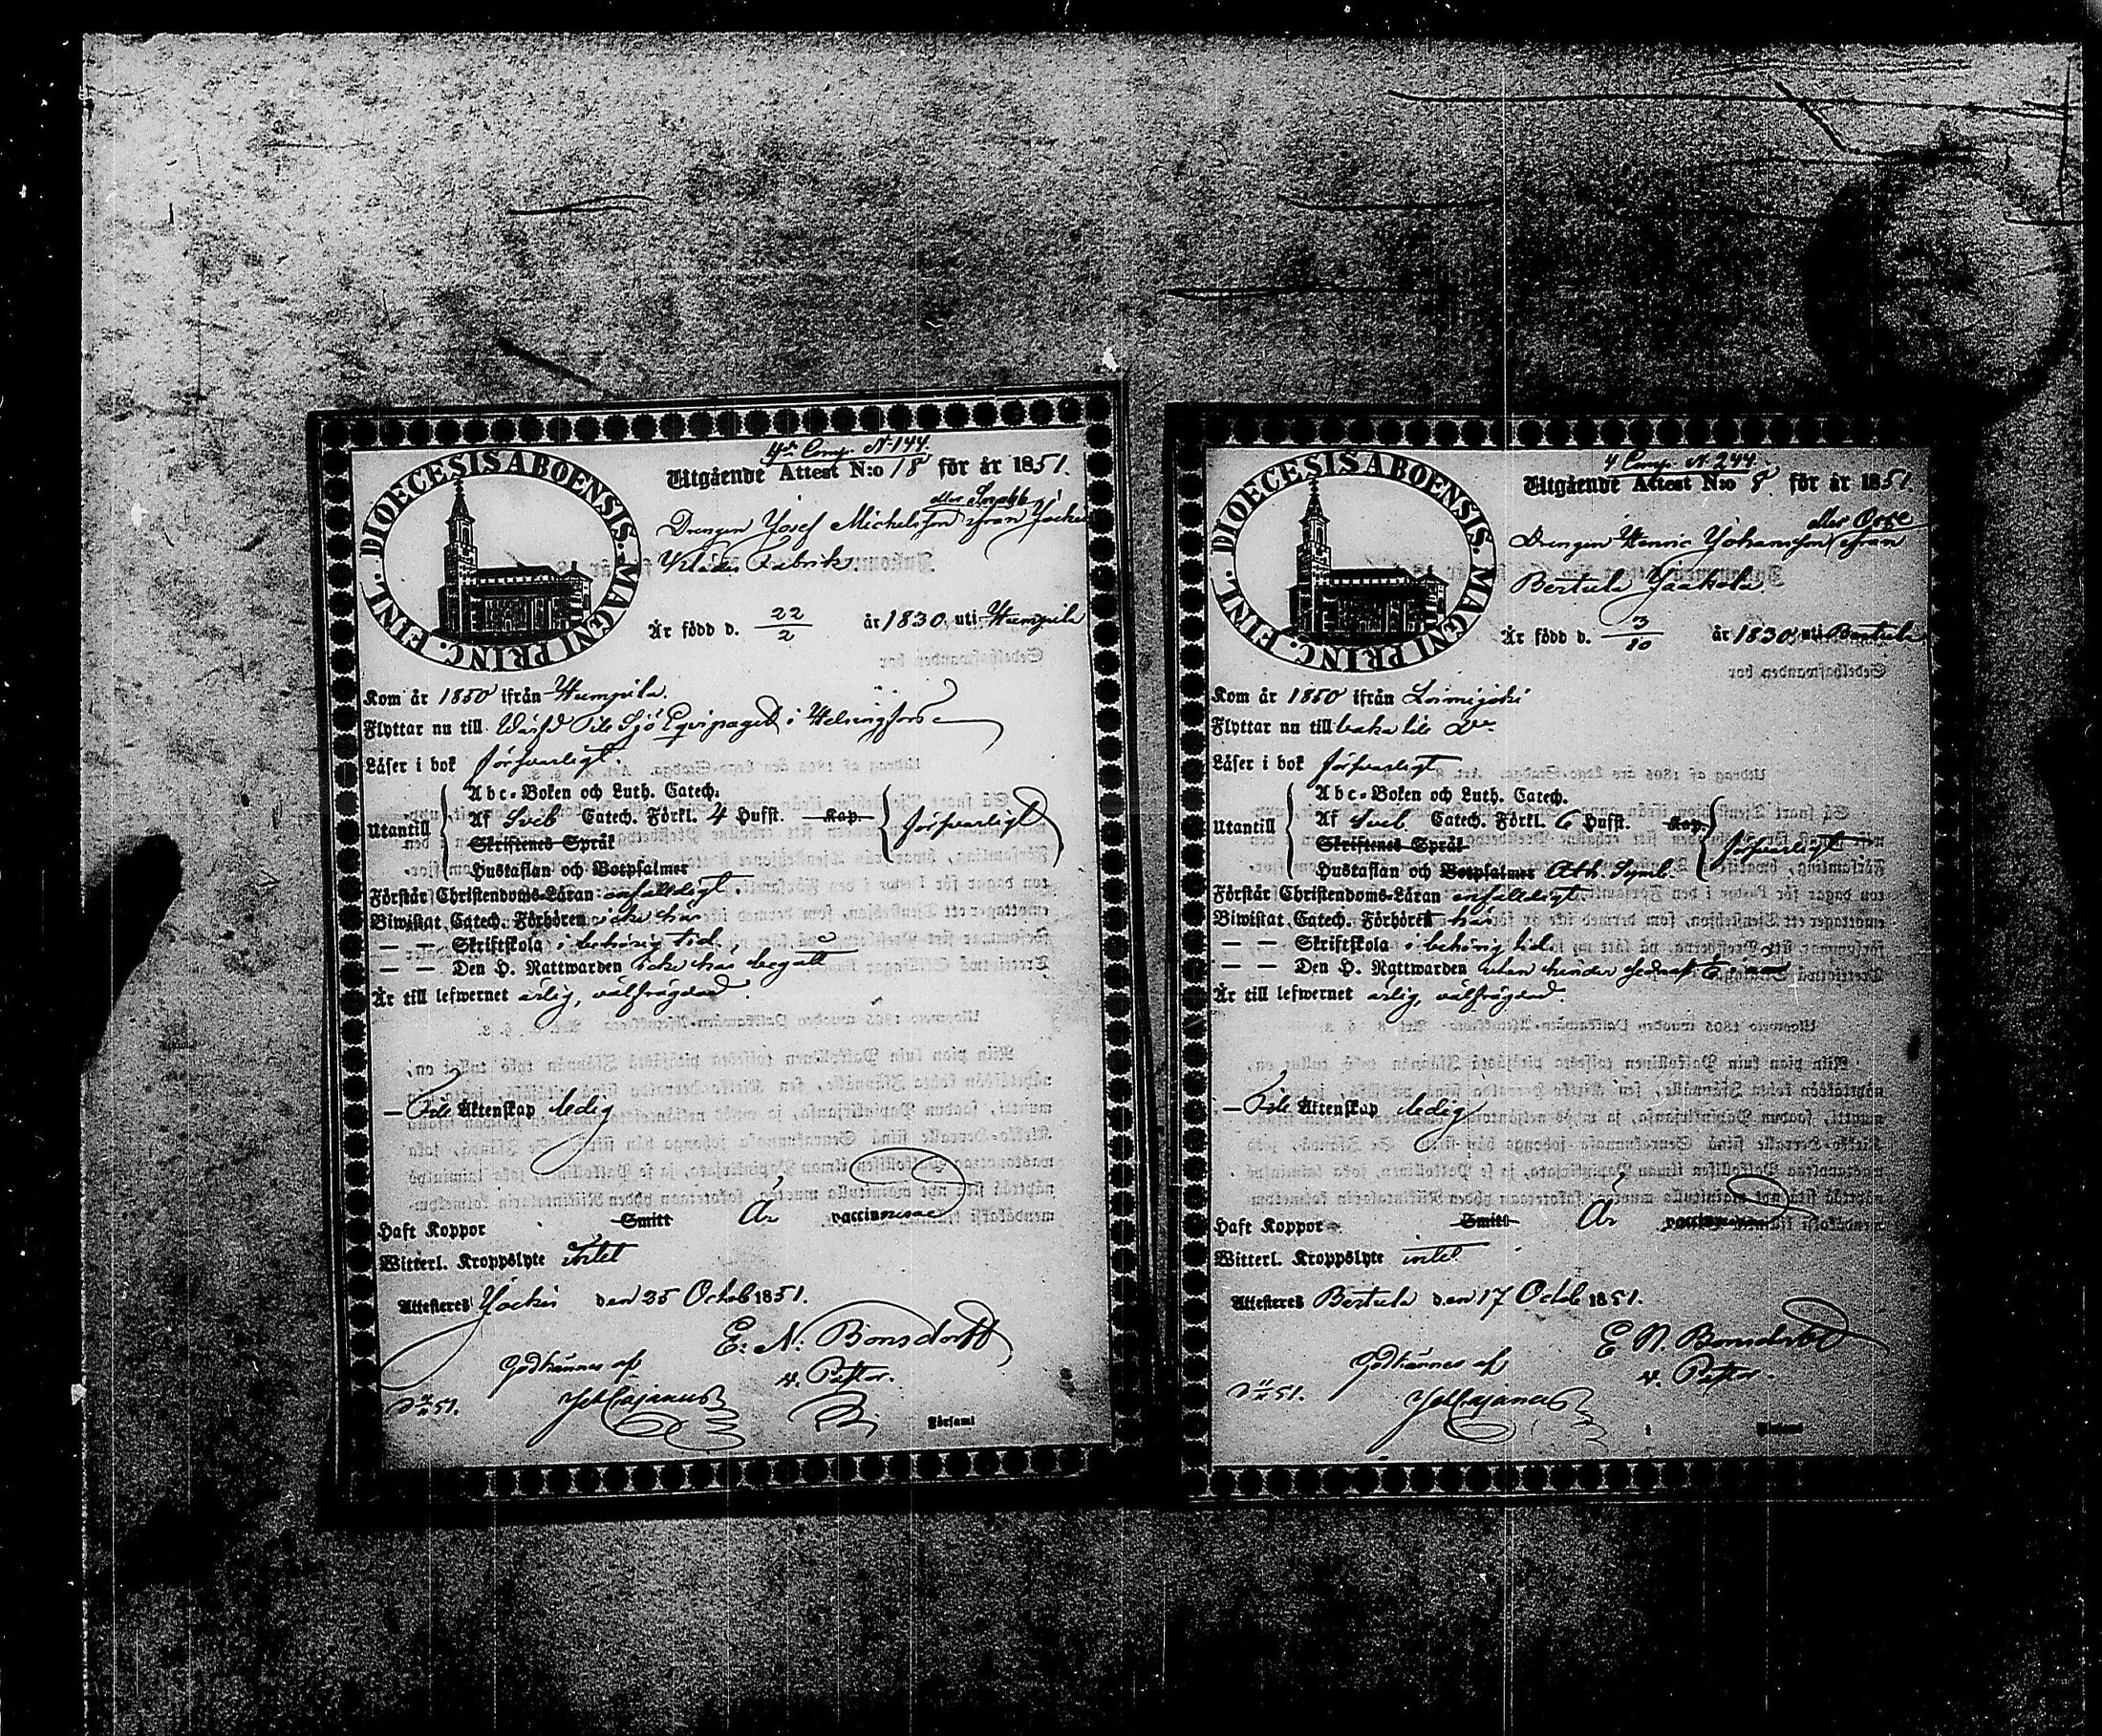 4de Comp. N 144.
DIOECESIS ABOENSIS. MAGNI PRINC. FINL.
Utgående Attest N:o 18 för år 1851.
eller Snabb
Drengen Josef Michelsson ifrån Jockis
Klädes Fabrik.
Är född d. 22/2 år 1830 uti Humpila
Kom år 1850 ifrån Humpila.
Flyttar nu till Wärfd till Sjö Equipaget i Helsingfors
Läser i bok försvarligt.
Abc-Boken och Luth. Catech.
Utantill Af Sveb Catech. Förkl. 4 Hufst. Kap. försvarligt
Skriftenes Språk
Hustaflan och Botpsalmer
Förstår Christendoms-Läran enfaldigt.
Biwistat Catech. Förhören icke har
— — Skriftskola i behörig tid
— — Den H. Nattwarden icke har begått
Är till lefwernet ärlig, välfrägdad.
— Till Äktenskap ledig
Haft Koppor Smitt Är vaccinerad
Witterl. Kroppslyte intet
Attesteras Jockis den 25 Octob 1851.
E. N. Bonsdorff
Godkännes af
v. Pastor.
Församl
4 Comp. N 244
DIOECESIS ABOENSIS. MAGNI PRINC. FINL.
Utgående Attest N:o 8 för år 1851.
eller Orre
Drengen Henric Johansson ifrån
Bertula Jaakola.
Är född d. 3/10 år 1830 uti Bertula
Kom år 1850 ifrån Loimijoki
Flyttar nu till baka till
Läser i bok försvarligt
Abc-Boken och Luth. Catech.
Utantill Af Sveb. Catech. Förkl. 6 Hufst. Kap. försvarligt
Skriftenes Språk
Hustaflan och Botpsalmer Ath. Symb.
Förstår Christendoms-Läran enfaldigt
Biwistat Catech. Förhören har
— — Skriftskola i behörig tid.
— — Den H. Nattwarden utan hinder
Är till lefwernet ärlig, välfrägdad.
— Till Äktenskap ledig
Haft Koppor Smitt Är vaccinerad
Witterl. Kroppslyte intet
Attesteras Bertula den 17 Octob 1851.
E N. Bonsdorff
Godkännes af
v. Pastor.
Församl